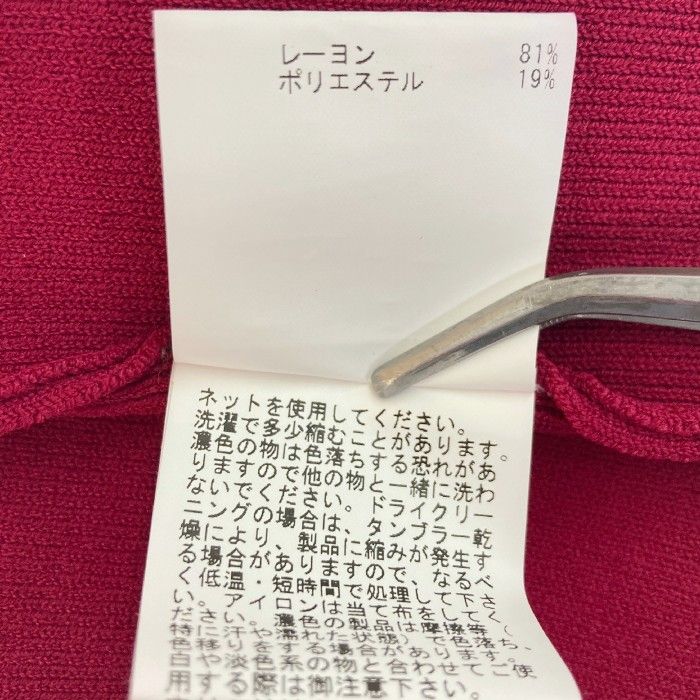 レーヨン 81%
ポリエステル 19%
ネットを使用してください。
洗濯で多少縮むことがあります。
濃色の物は色落ちする恐れがあ
りますので他の物と一緒に洗わ
ないでください。ドライクリー
ニングの場合は、タンブラー乾
燥により製品に縮みが発生す
る場合がありますので、なるべ
く低温・短時間で処理して下さ
い。アイロンは当て布をしてく
ださい。濃色の製品は摩擦等(
特に汗や濡れた状態)で色落ち、
色移りをする場合があります。
白や淡色系の物と合わせてご使
用する際は御注意下さい。